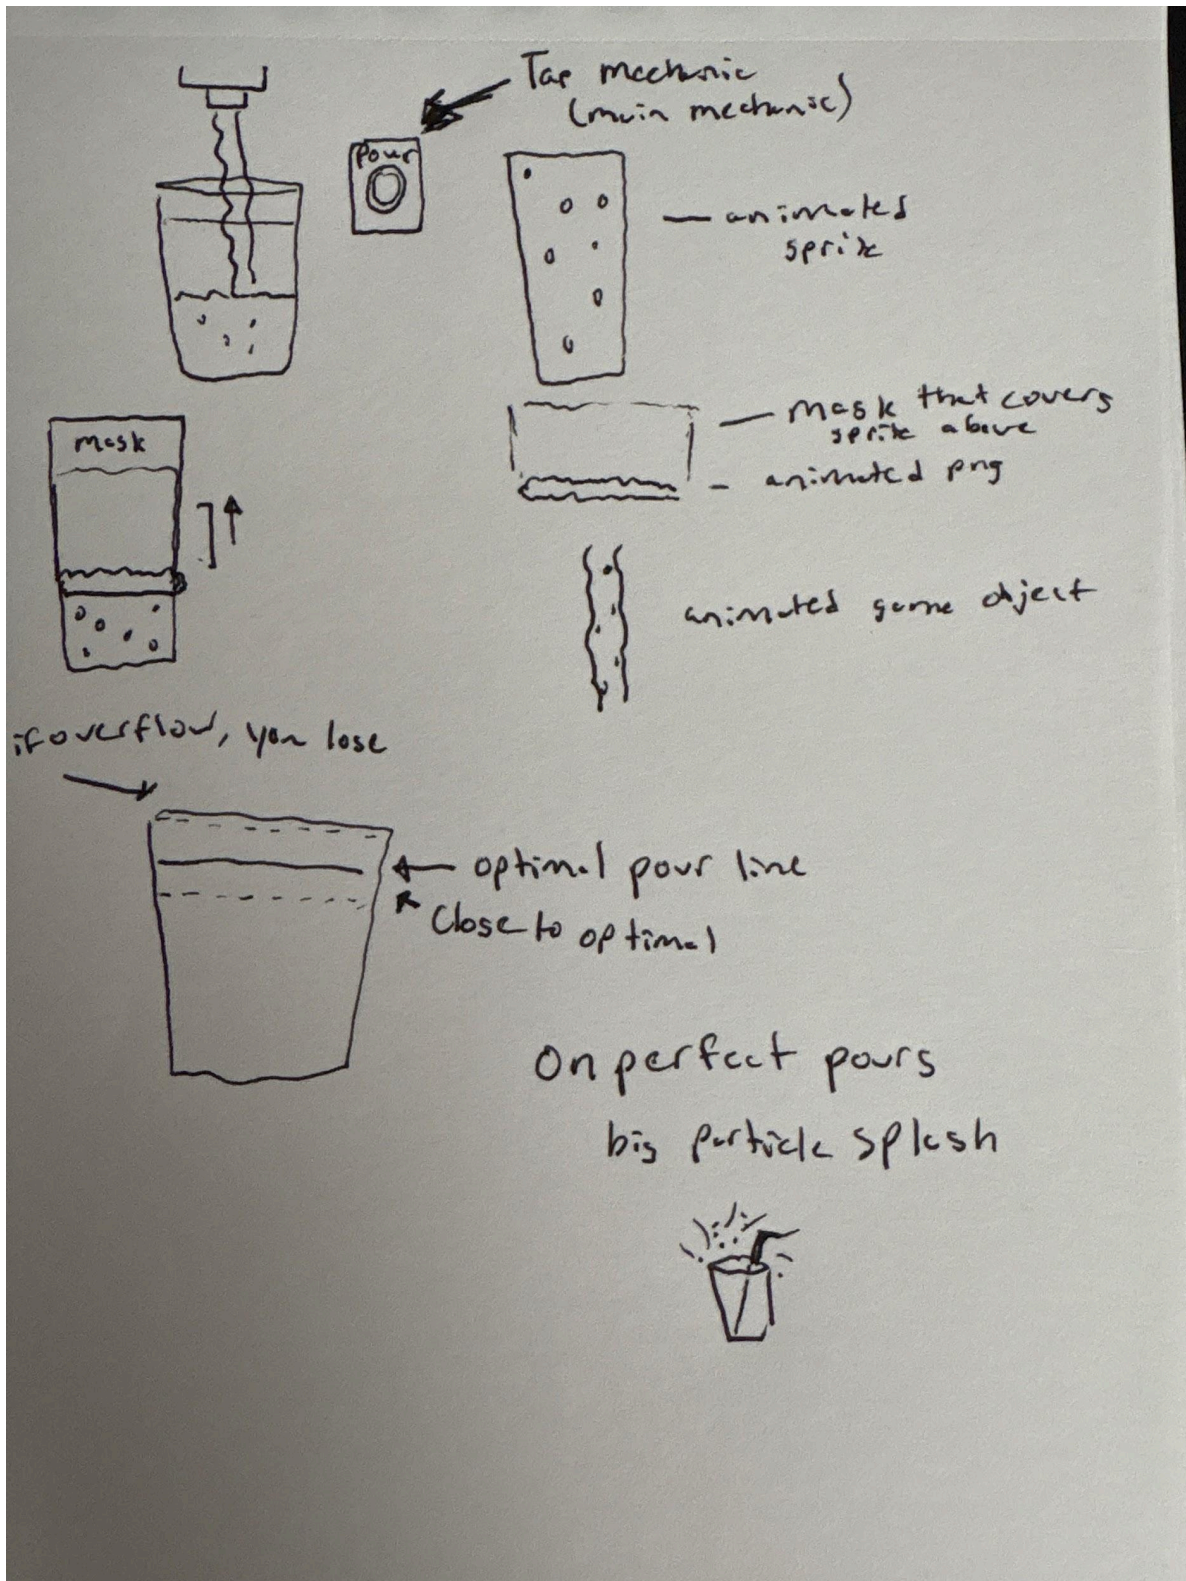 Tap mechanic
(main mechanic)
Pour
animated
sprite
mask that covers
sprite above
animated png
mask
animated game object
if overflow, you lose
optimal pour line
Close to optimal
On perfect pours
big particle splash